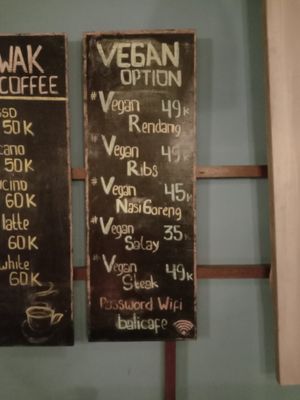 WAK
COFFEE
SSO
50K
cano
50K
ucino
60K
latte
60K
white
60K
VEGAN
OPTION
#Vegan 49K
Rendang
#Vegan 49K
Ribs
#Vegan 45K
Nasi Goreng
#Vegan 35K
Satay
#Vegan 49K
Steak
Password Wifi
balicafe